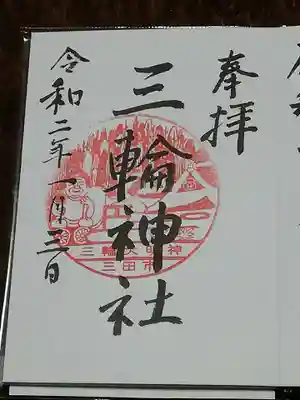 奉拝
三輪神社
令和二年一月三日
三輪大明神
三田市